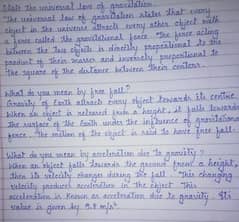 State the universal law of gravitation.
"The universal law of gravitation states that every
object in the universe attracts every other object with
a force called the gravitational force. The force acting
between the two objects is directly proportional to the
product of their masses and inversely proportional to
the square of the distance between their centers.
What do you mean by free fall?
Gravity of Earth attracts every object towards its centre.
When an object is released from a height, it falls towards
the surface of the Earth under the influence of gravitational
force. The motion of the object is said to have free fall.
What do you mean by acceleration due to gravity?
When an object falls towards the ground from a height,
then its velocity changes during the fall. This changing
velocity produces acceleration in the object. This
acceleration is known as acceleration due to gravity. Its
value is given by 9.8 m/s²